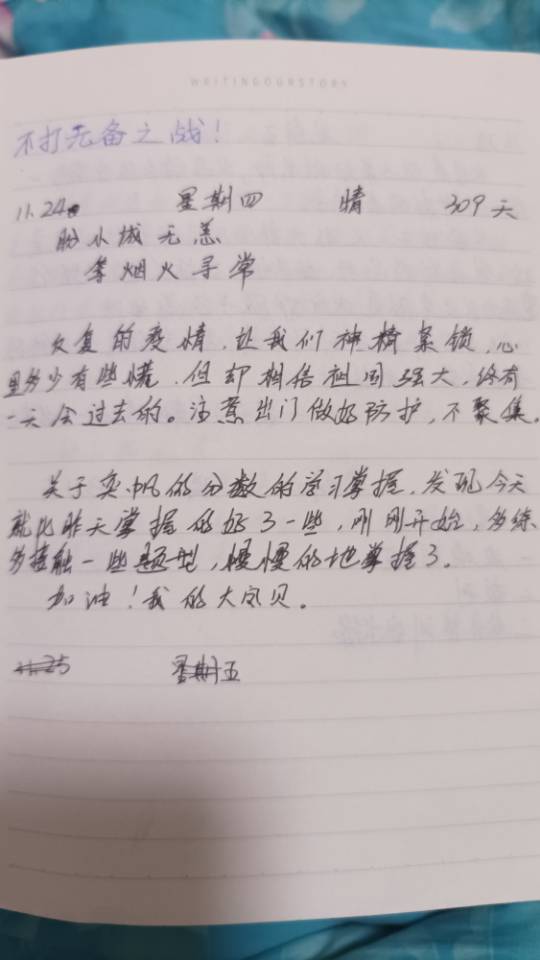 WRITINGOURSTORY
不打无备之战！
11.24 星期四 晴 309天
盼小城无恙
等烟火寻常
反复的疫情，让我们神精紧锁，心
里多少有些慌，但却相信祖国强大，终有
一天会过去的。注意出门做好防护，不聚集。
关于奕帆的分数的学习掌握，发现今天
就比昨天掌握的好了一些，刚刚开始，多练
多接触一些题型，慢慢的地掌握了。
加油！我的大宝贝。
11.25 星期五